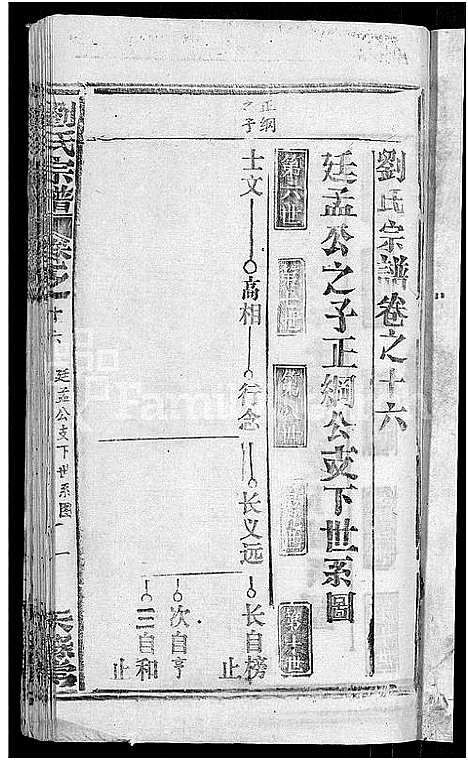 劉氏宗譜卷之十六
廷孟公之子正綱公支下世系圖
第十六世
正纲
之子
士文
高相
行念
长义远
长自榜
止
次自亨
三自和
止
劉氏宗譜
卷之十六
廷孟公支下世系图
一